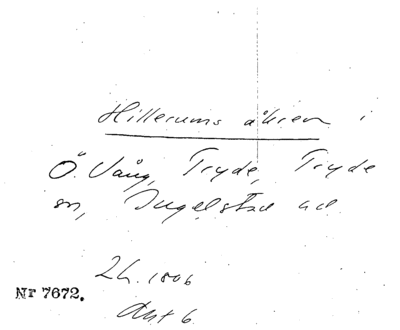 Hillerums åkren i
Ö. Vång, Tryde, Tryde
sn, Ingelstad hd
Lh. 1806
Nr 7672.
Akt 6